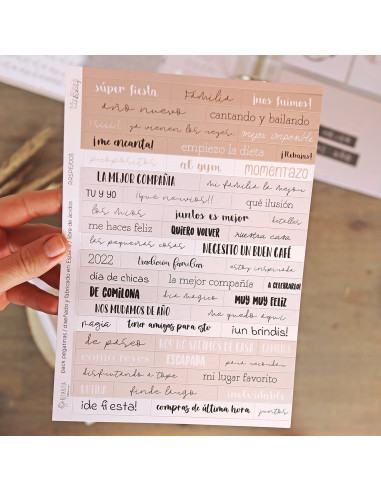 súper fiesta Familia ¡nos fuimos!
año nuevo cantando y bailando
ya vienen los reyes mejor imposible
¡me encanta! empiezo la dieta ¡Rebajas!
propósitos al gym momentazo
LA MEJOR COMPAÑÍA mi familia la mejor
TU Y YO ¡qué nervios!! qué ilusión
los míos juntos es mejor detalles
me haces feliz QUIERO VOLVER nuestra casa
las pequeñas cosas NECESITO UN BUEN CAFÉ
2022 tradición familiar estoy inspirada
día de chicas la mejor compañía A CELEBRARLO!
DE COMILONA día mágico MUY MUY FELIZ
NOS MUDAMOS DE AÑO me quedo aquí
magia tener amigos para esto ¡un brindis!
de paseo
como reyes ESCAPADA para recordar
disfrutando a tope mi lugar favorito
finde largo inolvidable
¡de fiesta! compras de última hora juntos